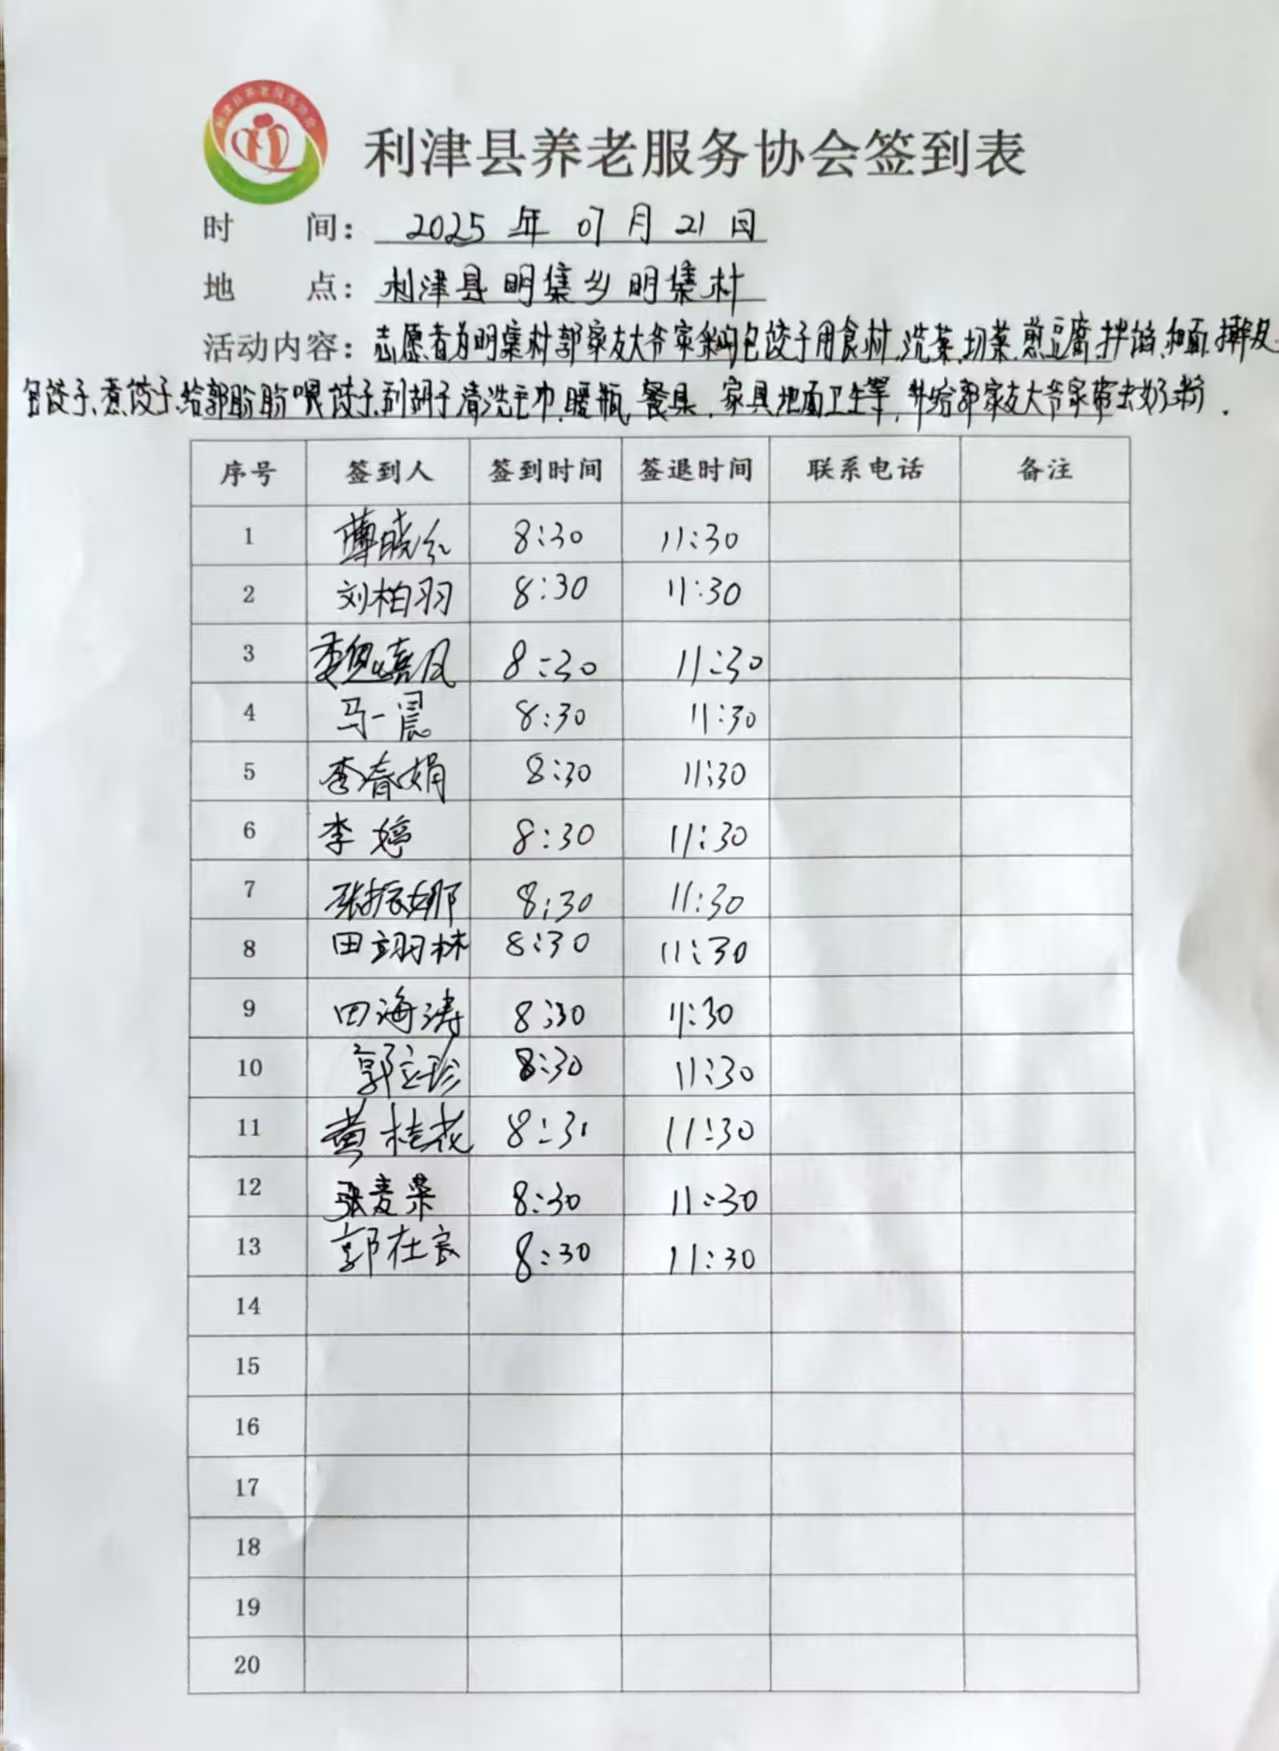 利津县养老服务协会
利津县养老服务协会签到表
时 间： 2025 年 07 月 21 日
地 点： 利津县明集乡明集村
活动内容：志愿者为明集村郭家友大爷家采购包饺子用食材,洗菜,切菜,煎豆腐,拌馅,和面,擀皮
包饺子,煮饺子,给郭盼盼喂饺子,刮胡子清洗毛巾,暖瓶,餐具,家具地面卫生等,并给郭家友大爷家带去奶粉.
序号 签到人 签到时间 签退时间 联系电话 备注
1 薄晓红 8:30 11:30
2 刘柏羽 8:30 11:30
3 魏嘉凤 8:30 11:30
4 马一晨 8:30 11:30
5 李春娟 8:30 11:30
6 李婷 8:30 11:30
7 张振娜 8:30 11:30
8 田翊林 8:30 11:30
9 田海涛 8:30 11:30
10 郭立珍 8:30 11:30
11 黄桂花 8:31 11:30
12 张麦荣 8:30 11:30
13 郭在良 8:30 11:30
14
15
16
17
18
19
20